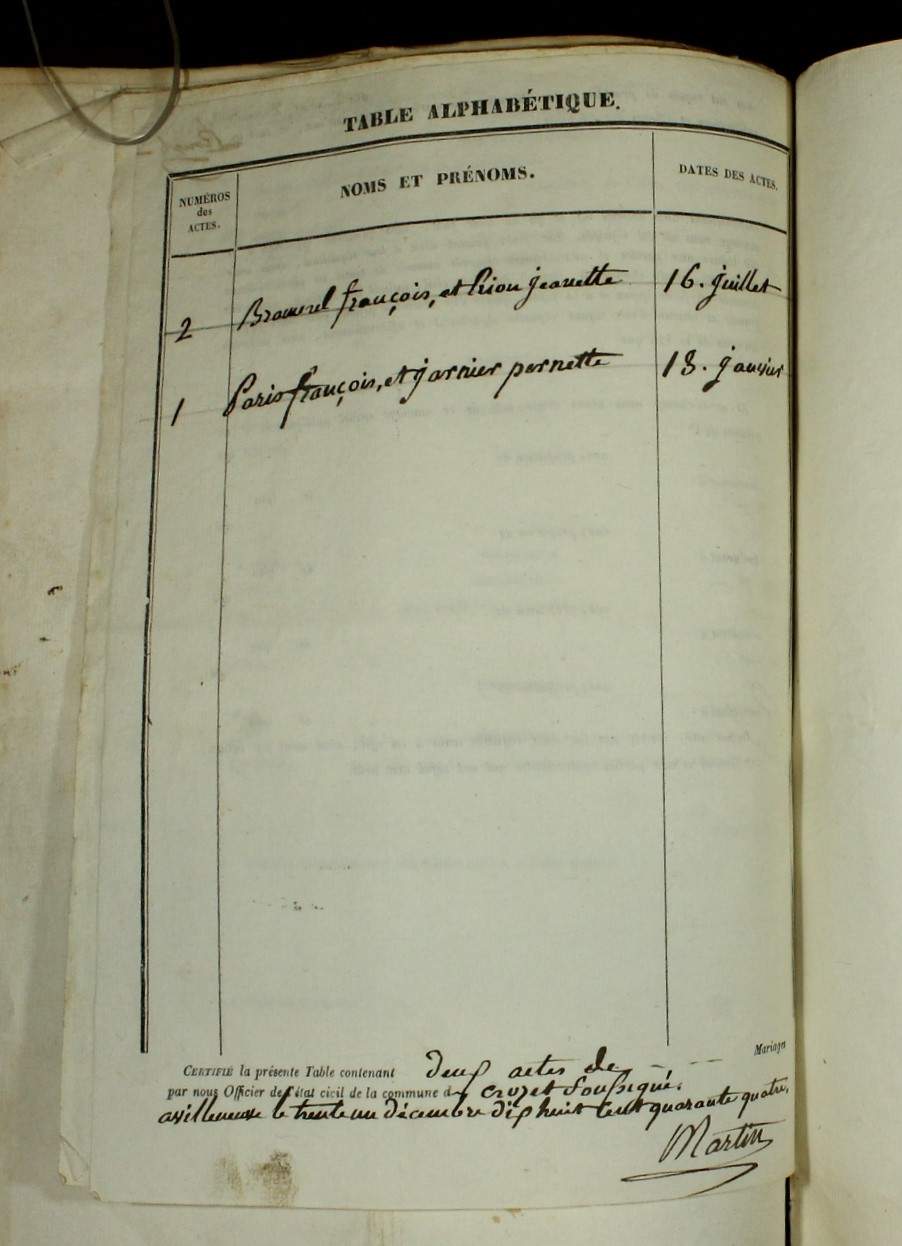 TABLE ALPHABÉTIQUE.
NUMÉROS des ACTES.
NOMS ET PRÉNOMS.
DATES DES ACTES.
2 françois, et jeanette 16. juillet
1 Paris françois, et jarnier pernette 18. janvier
Mariages
CERTIFIÉ la présente Table contenant deux actes de
par nous Officier de l'état civil de la commune de crozet soussigné.
a villeneuve le trente un décembre dix huit cent quarante quatre,
Martin